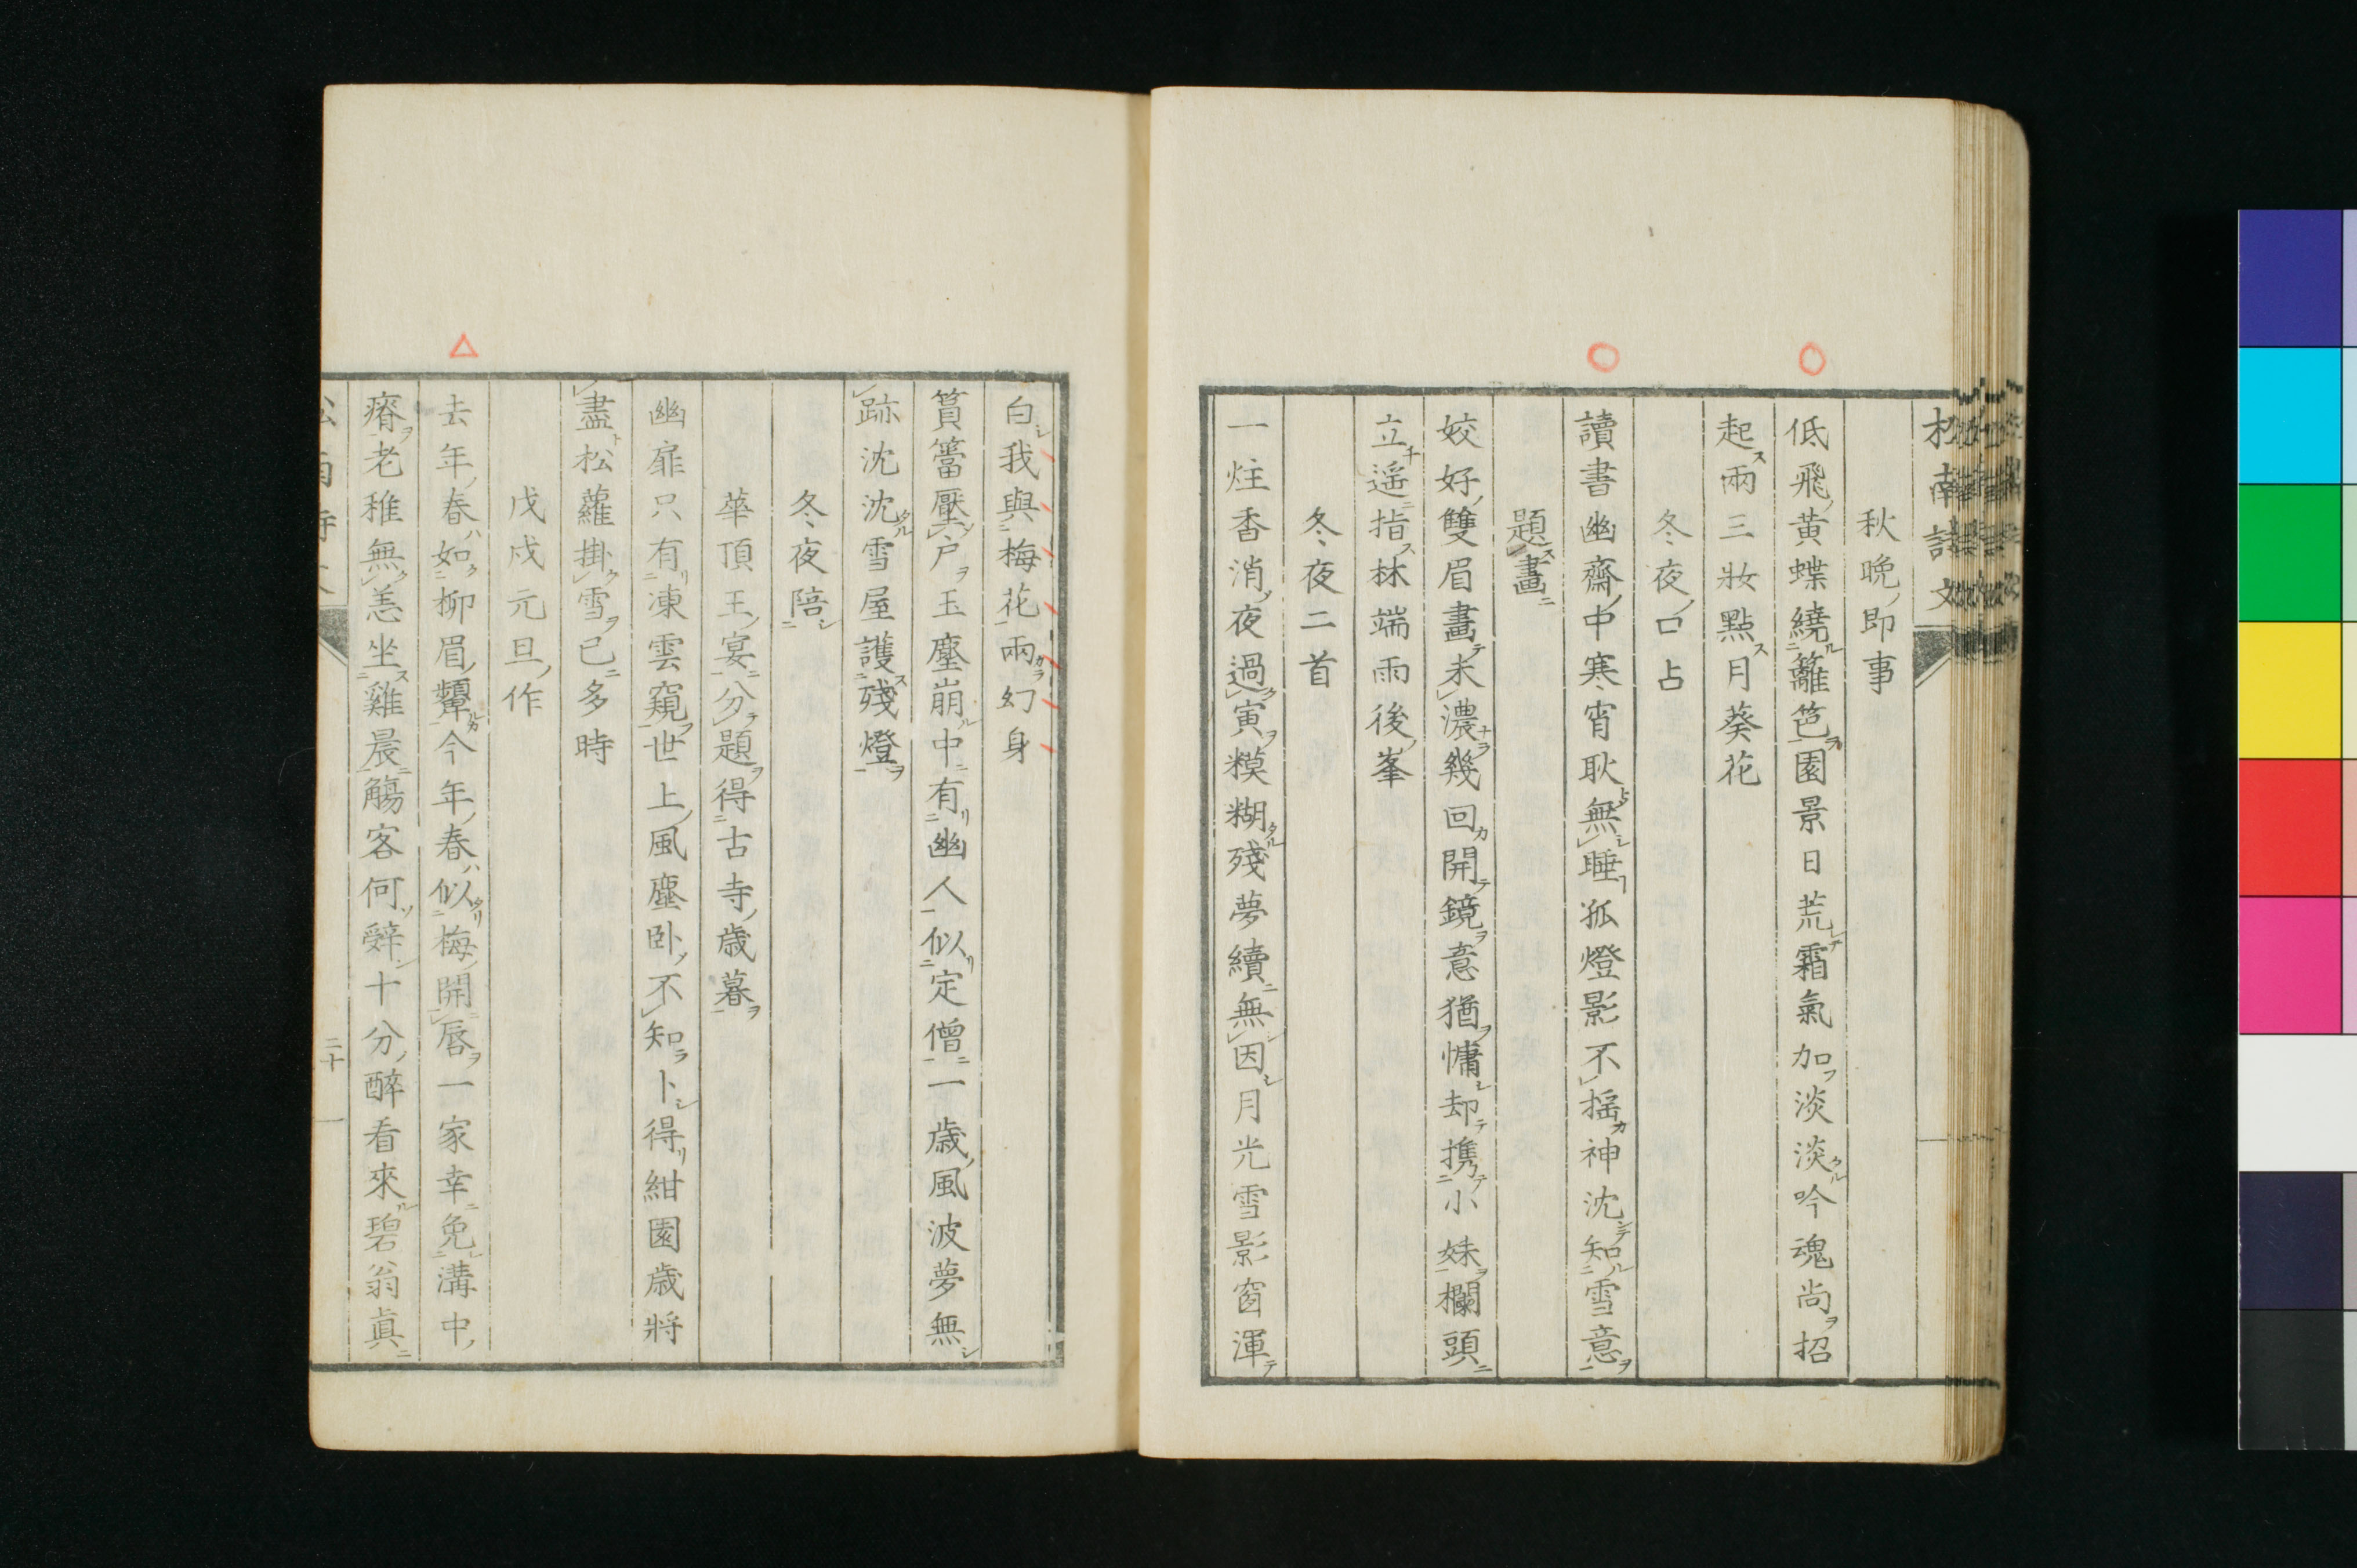 秋晩即事
低飛黄蝶繞籬笆園景日荒霜氣加淡淡吟魂尚招
起兩三妝點月葵花
冬夜口占
讀書幽齋中寒宵耿無睡孤燈影不搖神沈知雪意
題畫
姣好雙眉畫未濃幾回開鏡意猶慵却携小妹欄頭
立遥指林端雨後峯
冬夜二首
一炷香消夜過寅糢糊殘夢續無因月光雪影窗渾
白我與梅花兩幻身
篔簹壓戸玉塵崩中有幽人似定僧一歳風波夢無
跡沈沈雪屋護殘燈
冬夜陪
華頂王宴分題得古寺歳暮
幽扉只有凍雲窺世上風塵卧不知卜得紺園歳將
盡松蘿掛雪已多時
戊戌元旦作
去年春如柳眉顰今年春似梅開唇一家幸免溝中
瘠老稚無恙坐雞晨觴客何辤十分醉看來碧翁眞
二十